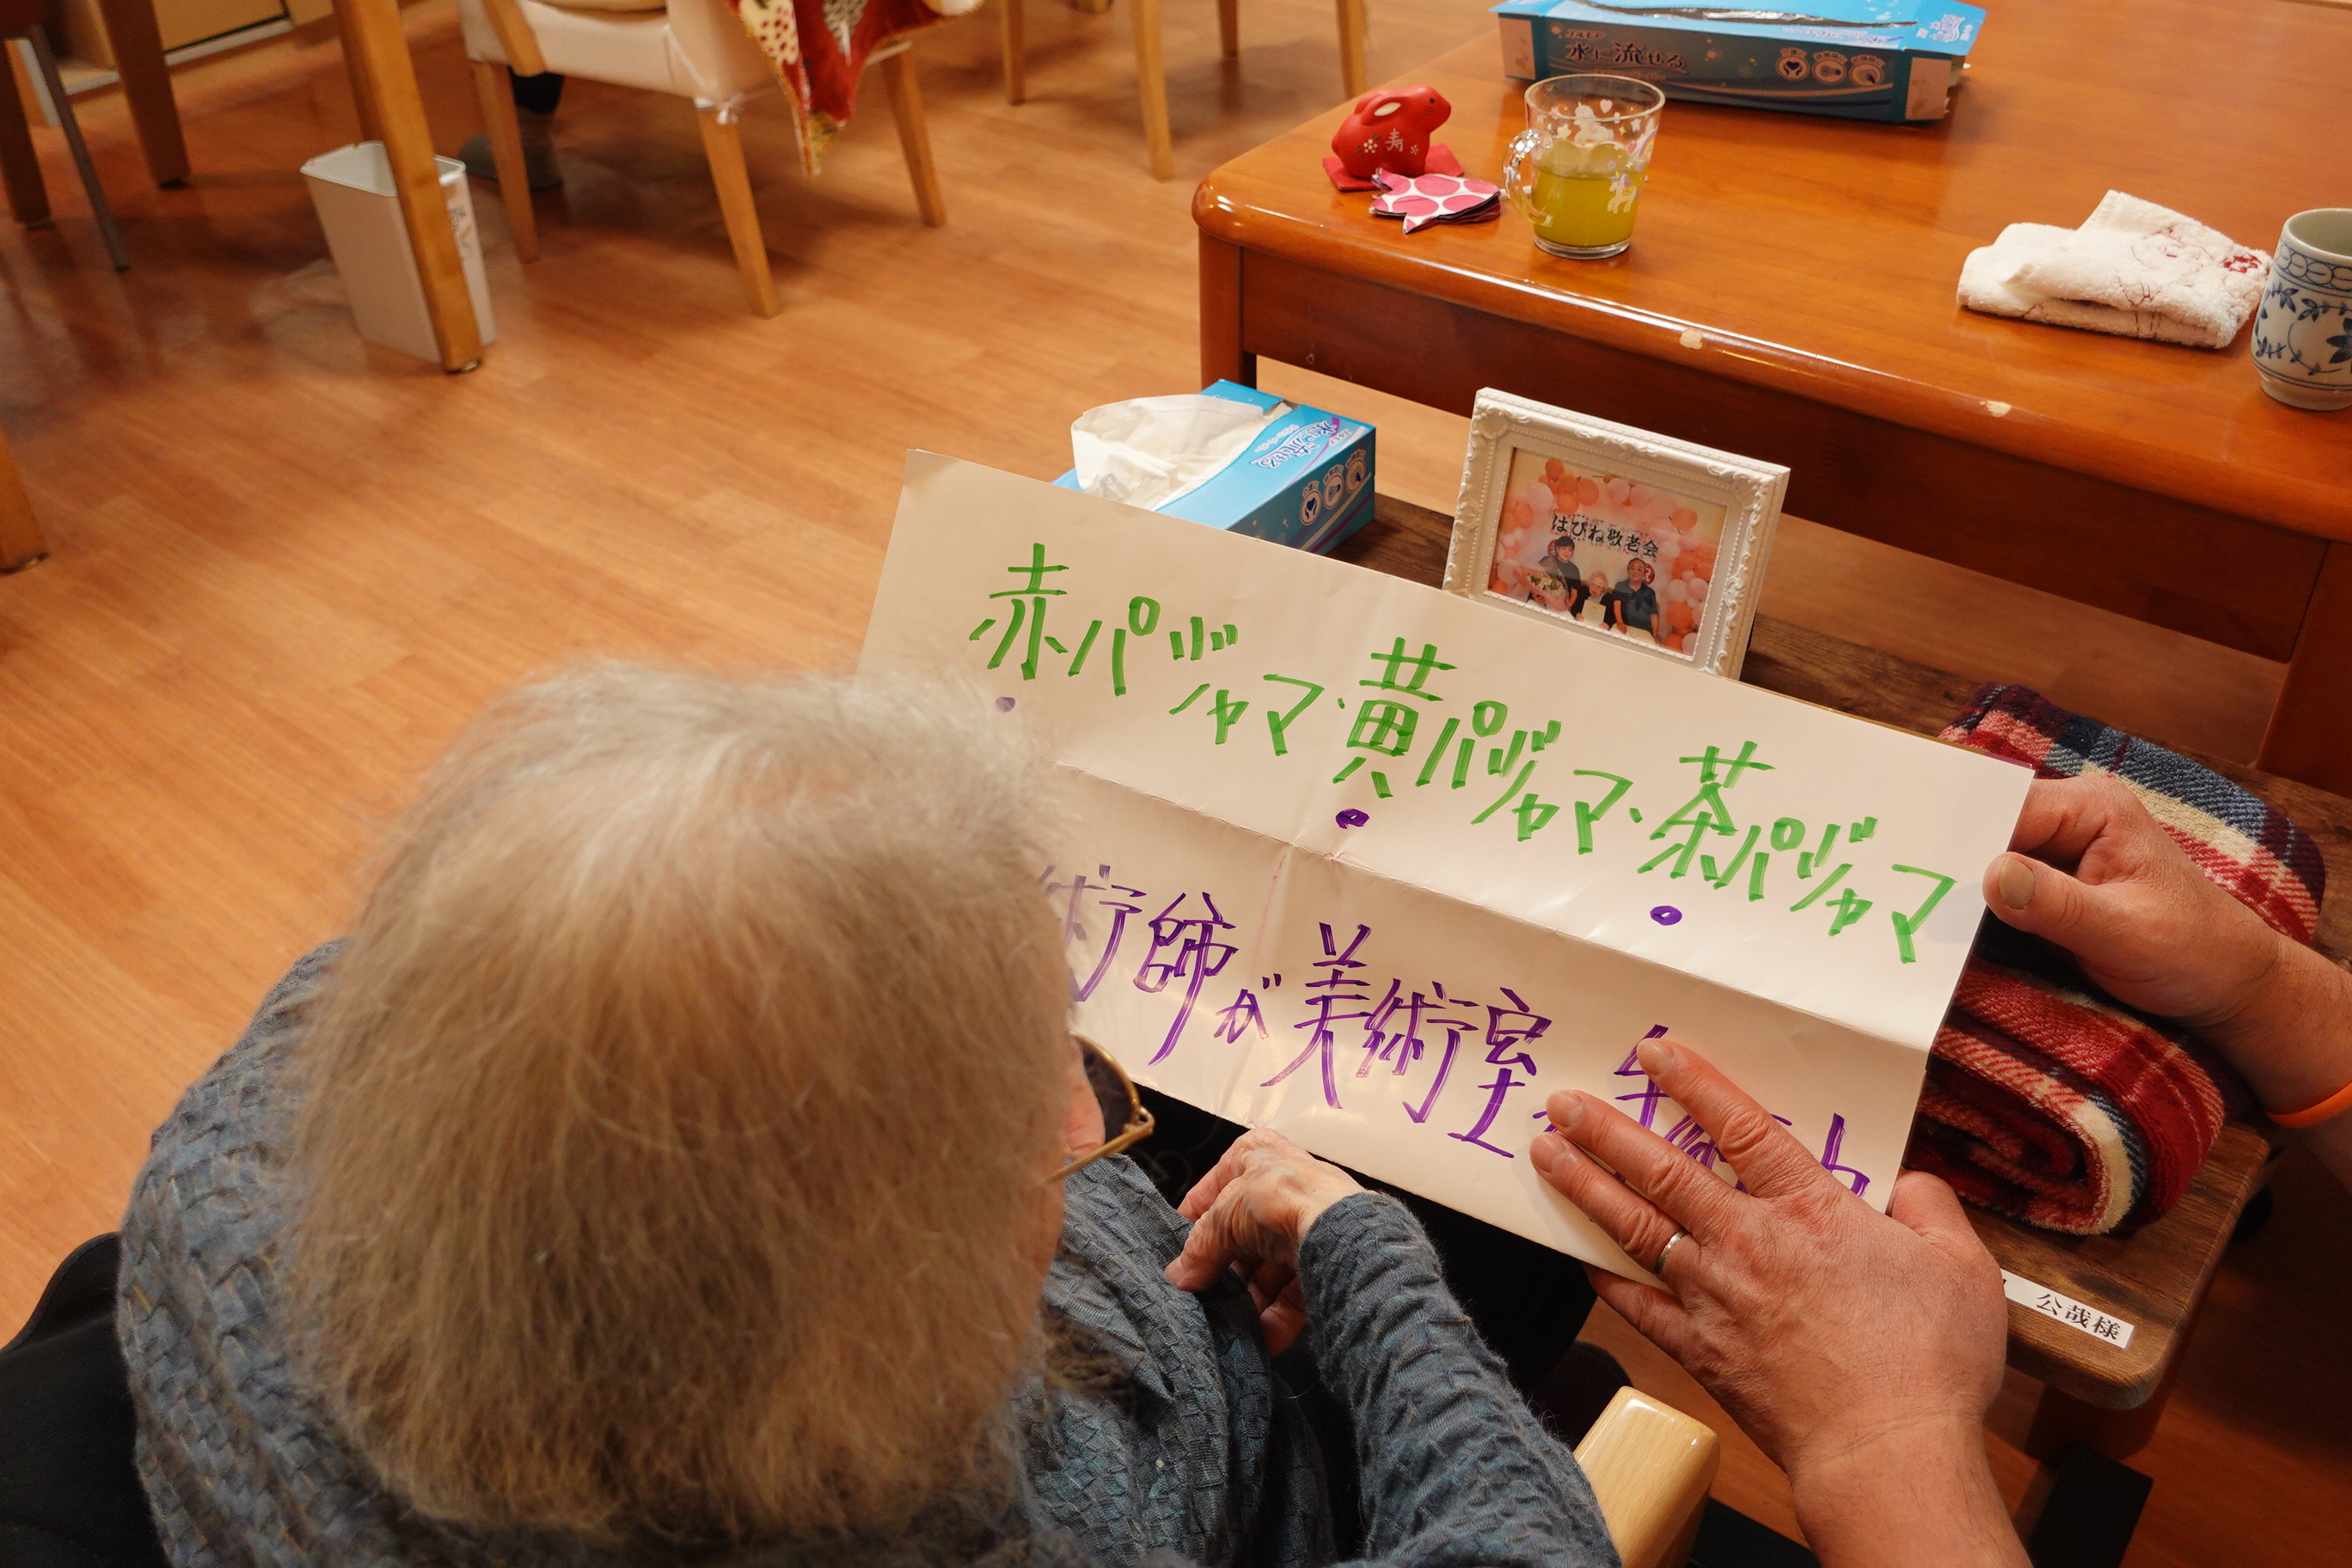 水に流せる
寿
水に流せる
はぴね敬老会
赤パジャマ・黄パジャマ・茶パジャマ
術師が美術室
公哉様